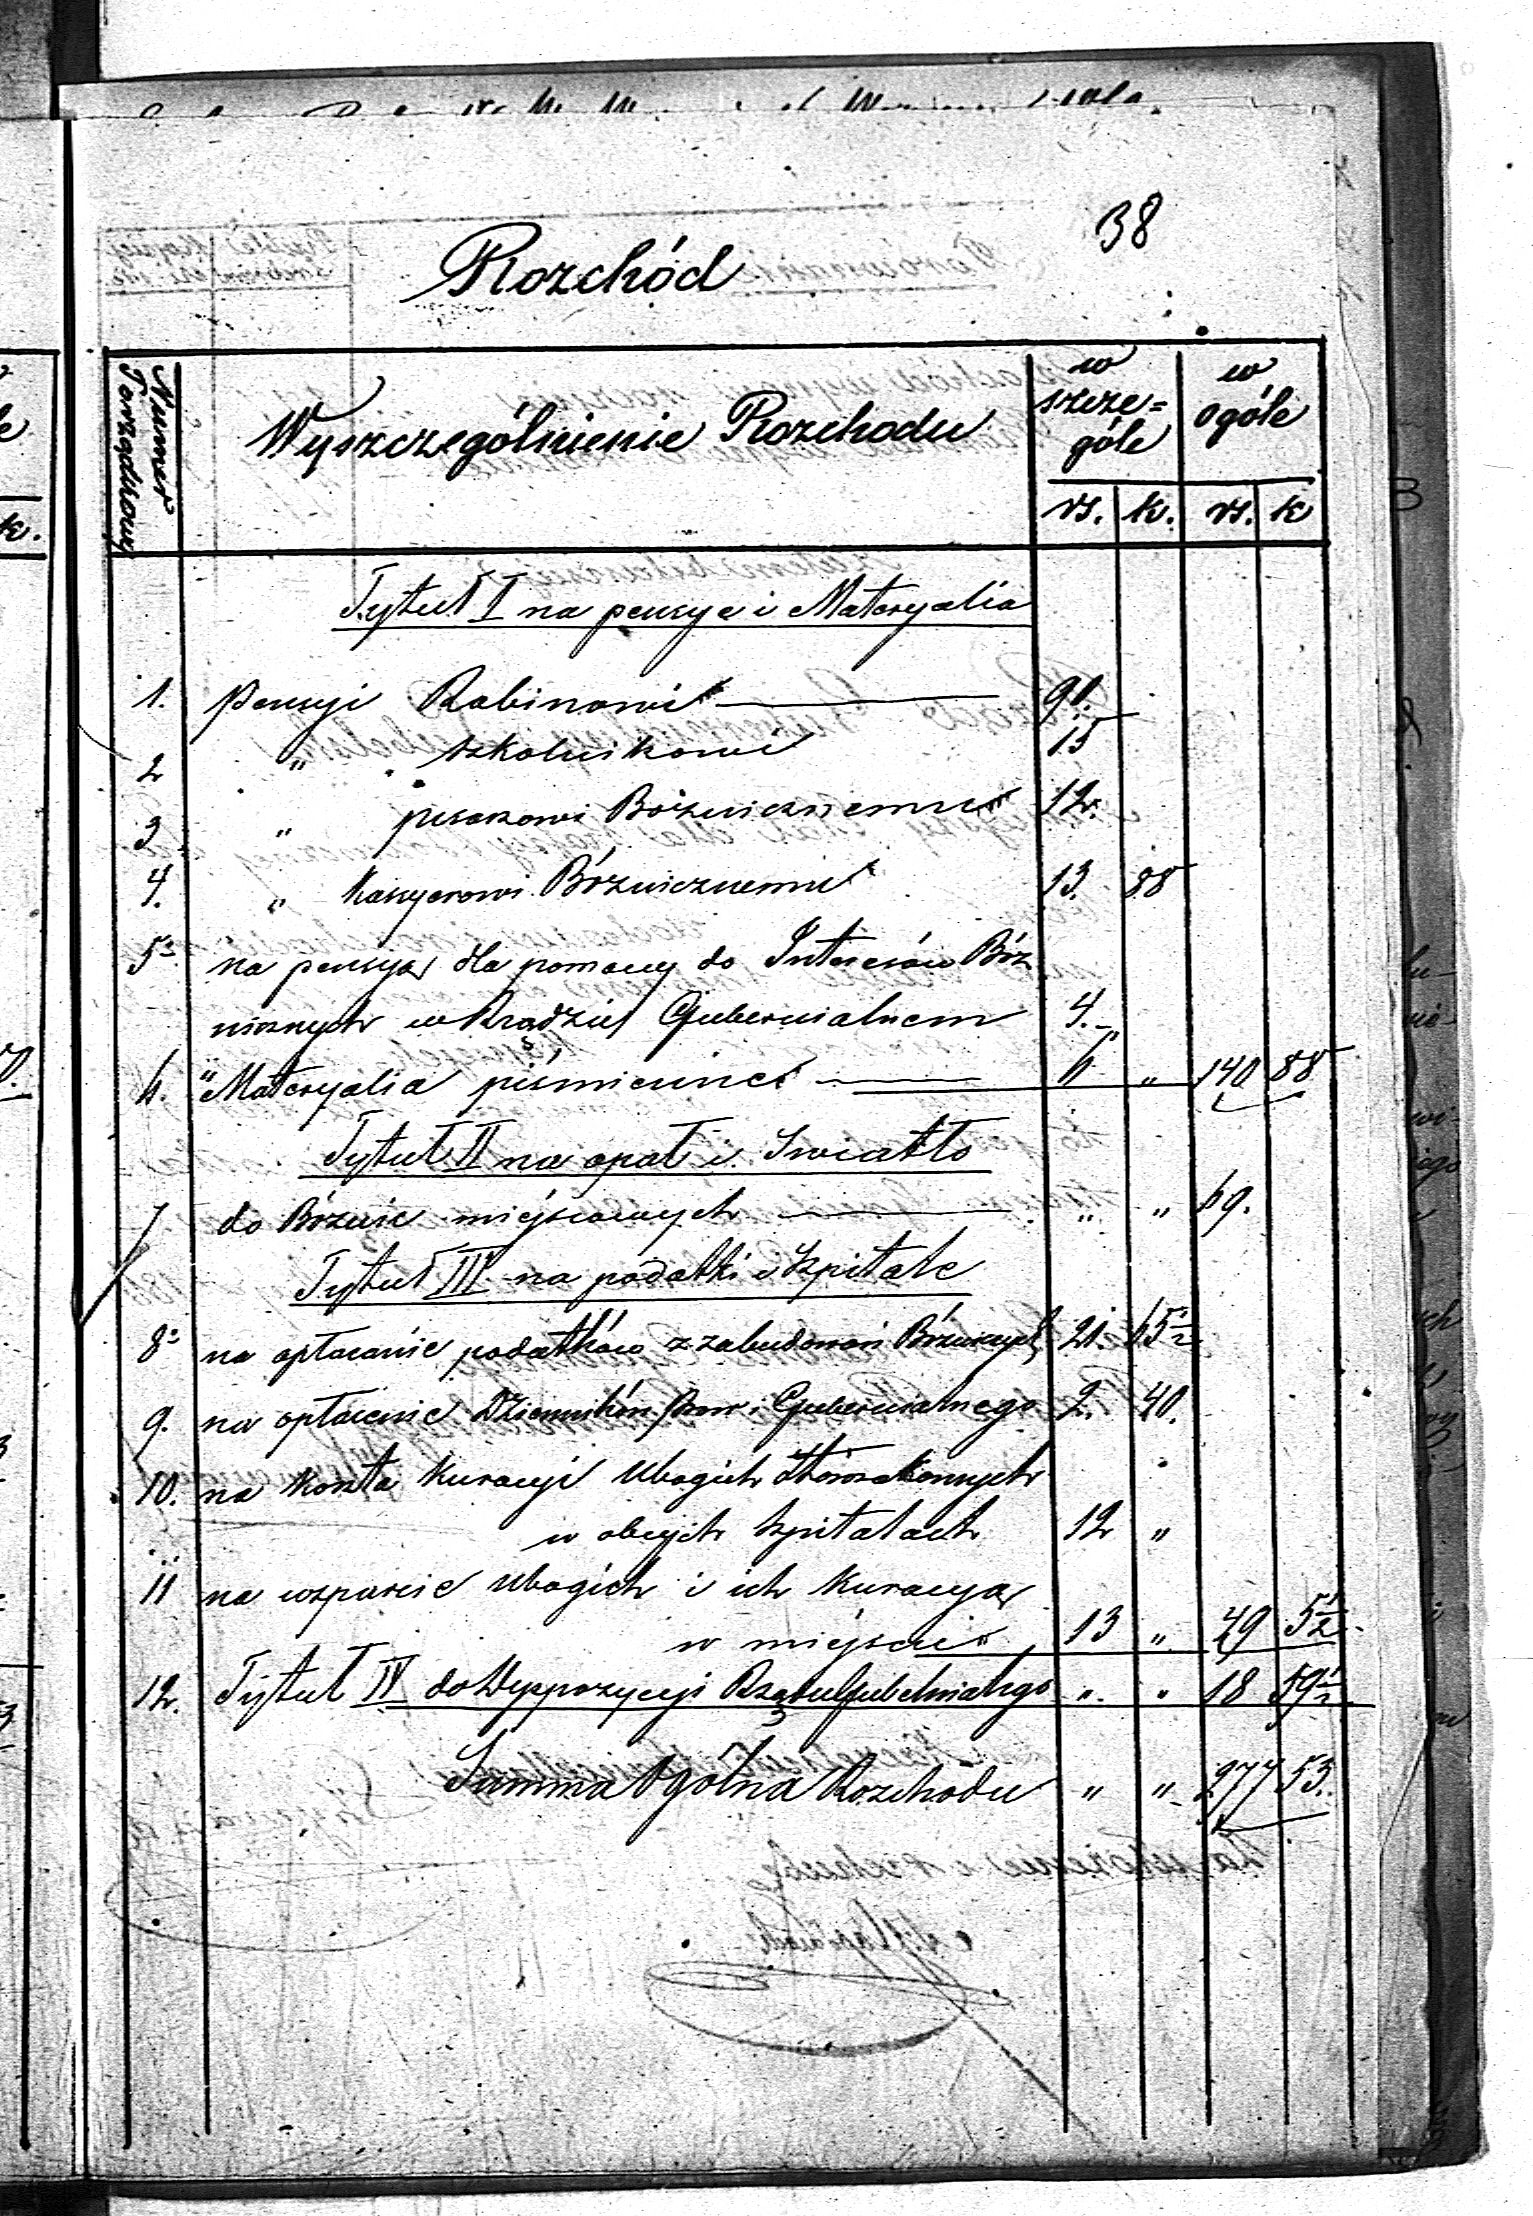 38
Rozchód
Numer Porządkowy
Wyszczególnienie Rozchodu
w szcze=
góle
w
ogóle
rs. k. rs. k
Tytuł I na pensye i Materyalia
1. Pensyi Rabinowi 90.
2 " Szkolnikowi 15
3 " pisarzowi Bóżnicznemu 12.
4. " Kasyerowi Bóżnicznemu 13. 88
5. na pensyą dla pomocy do Interesów Bóż
nicznych w Rządzie Gubernialnem 4. "
6. " Materyalia piśmienne 6 " 140 88
Tytuł II na opał i Swiatło
7 do Bóżnic miejscowych " " 69.
Tytuł III na podatki i Szpitale
8. na opłacanie podatków z zabudowań Bóżniczych 21. 65½
9. na opłacenie Dzienników Praw i Gubernialnego 2. 40.
10. na koszta kuracyi Ubogich Starozakonnych
w obcych Szpitalach 12 "
11 na wsparcie Ubogich i ich kuracyą
w miejscu 13 " 49 5½
12. Tytuł IV do Dyspozycyi Rządu Gubernialnego " " 18 59½
Summa Ogólna Rozchodu " " 277 53.